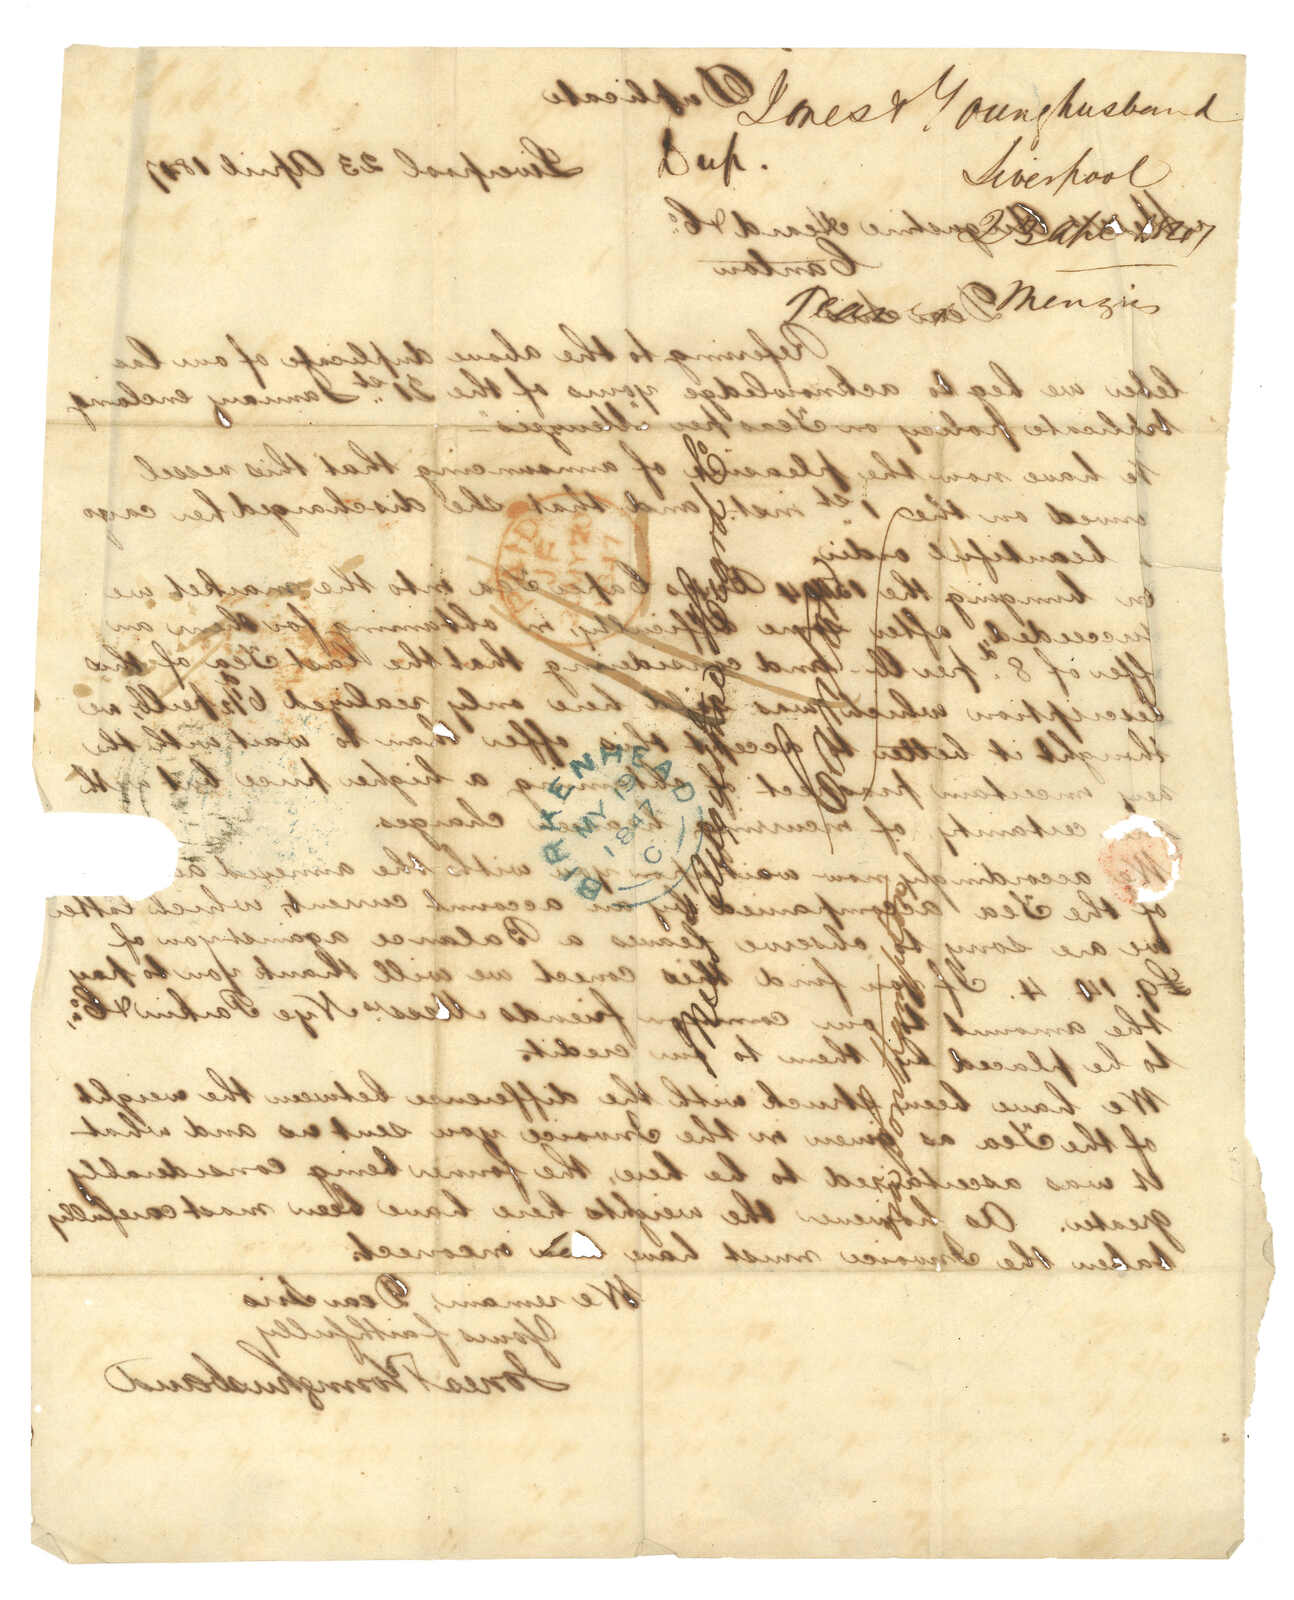 Jones & Younghusband
Dup.
Liverpool
23 Apl 1847
Teas pr Menzies
Duplicate
Liverpool 23 April 1847
Messrs Augustine Heard & Co.
Canton
Dear Sirs
Referring to the above duplicate of our las
letter we beg to acknowledge yours of the 31st January enclosing
duplicate policy on Teas per Menzies
We have now the pleasure of announcing that this vessel
arrived on the 1st inst. and that she discharged her cargo
beautiful order
On bringing the Caper Tea into the market we
succeeded, after some difficulty, in obtaining for them an
offer of 8d per lb and considering that the last Tea of this
description which was sold here only realized 6½d per lb, we
thought it better to accept this offer than to wait with the
very uncertain prospect of obtaining a higher price but with
certainty of incurring heavier charges.
We accordingly now wait upon you with the annexed ac
of the Tea accompanied by an account current, which latter
we are sorry to observe leaves a Balance against you of
£9. 14. 4. If you find this correct we will thank you to pay
the amount to our common friends Messrs Nye Parkin & Co.,
to be placed by them to our credit.
We have been struck with the difference between the weight
of the Tea as given in the Invoice you sent us and what
it was ascertained to be here, the former being considerably
greater. As however the weights here have been most carefully
taken the Invoice must have been incorrect.
We remain, Dear Sirs
Yours faithfully
Jones & Younghusband
PAID
JE
MY 20
1847
BIRKENHEAD
MY 19
1847
C